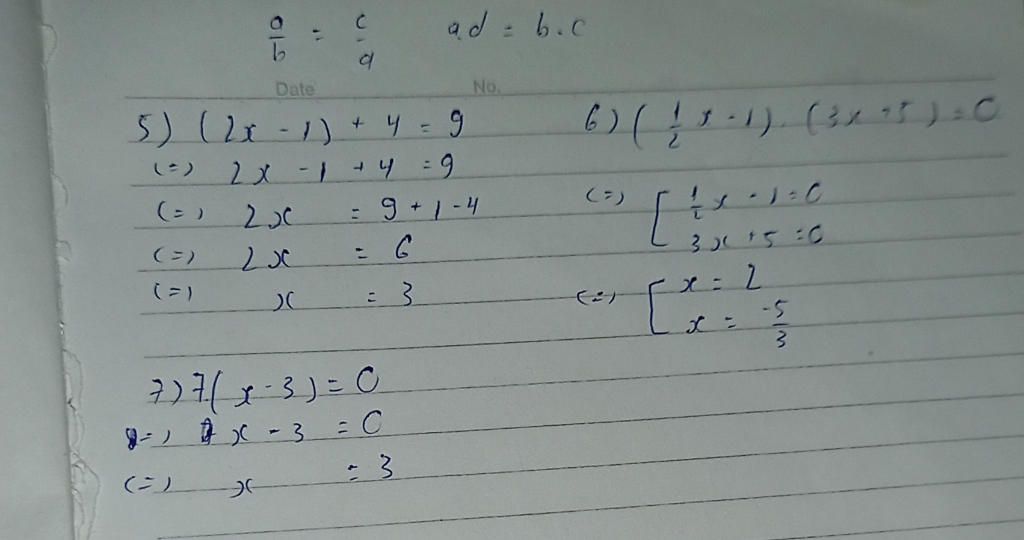 a/b = c/d ad = b.c
Date No.
5) (2x - 1) + 4 = 9
(=) 2x - 1 + 4 = 9
(=) 2x = 9 + 1 - 4
(=) 2x = 6
(=) x = 3
6) (1/2 x - 1) . (3x + 5) = 0
(=) [ 1/2 x - 1 = 0
3x + 5 = 0
(=) [ x = 2
x = -5/3
7) 7(x - 3) = 0
(=) x - 3 = 0
(=) x = 3